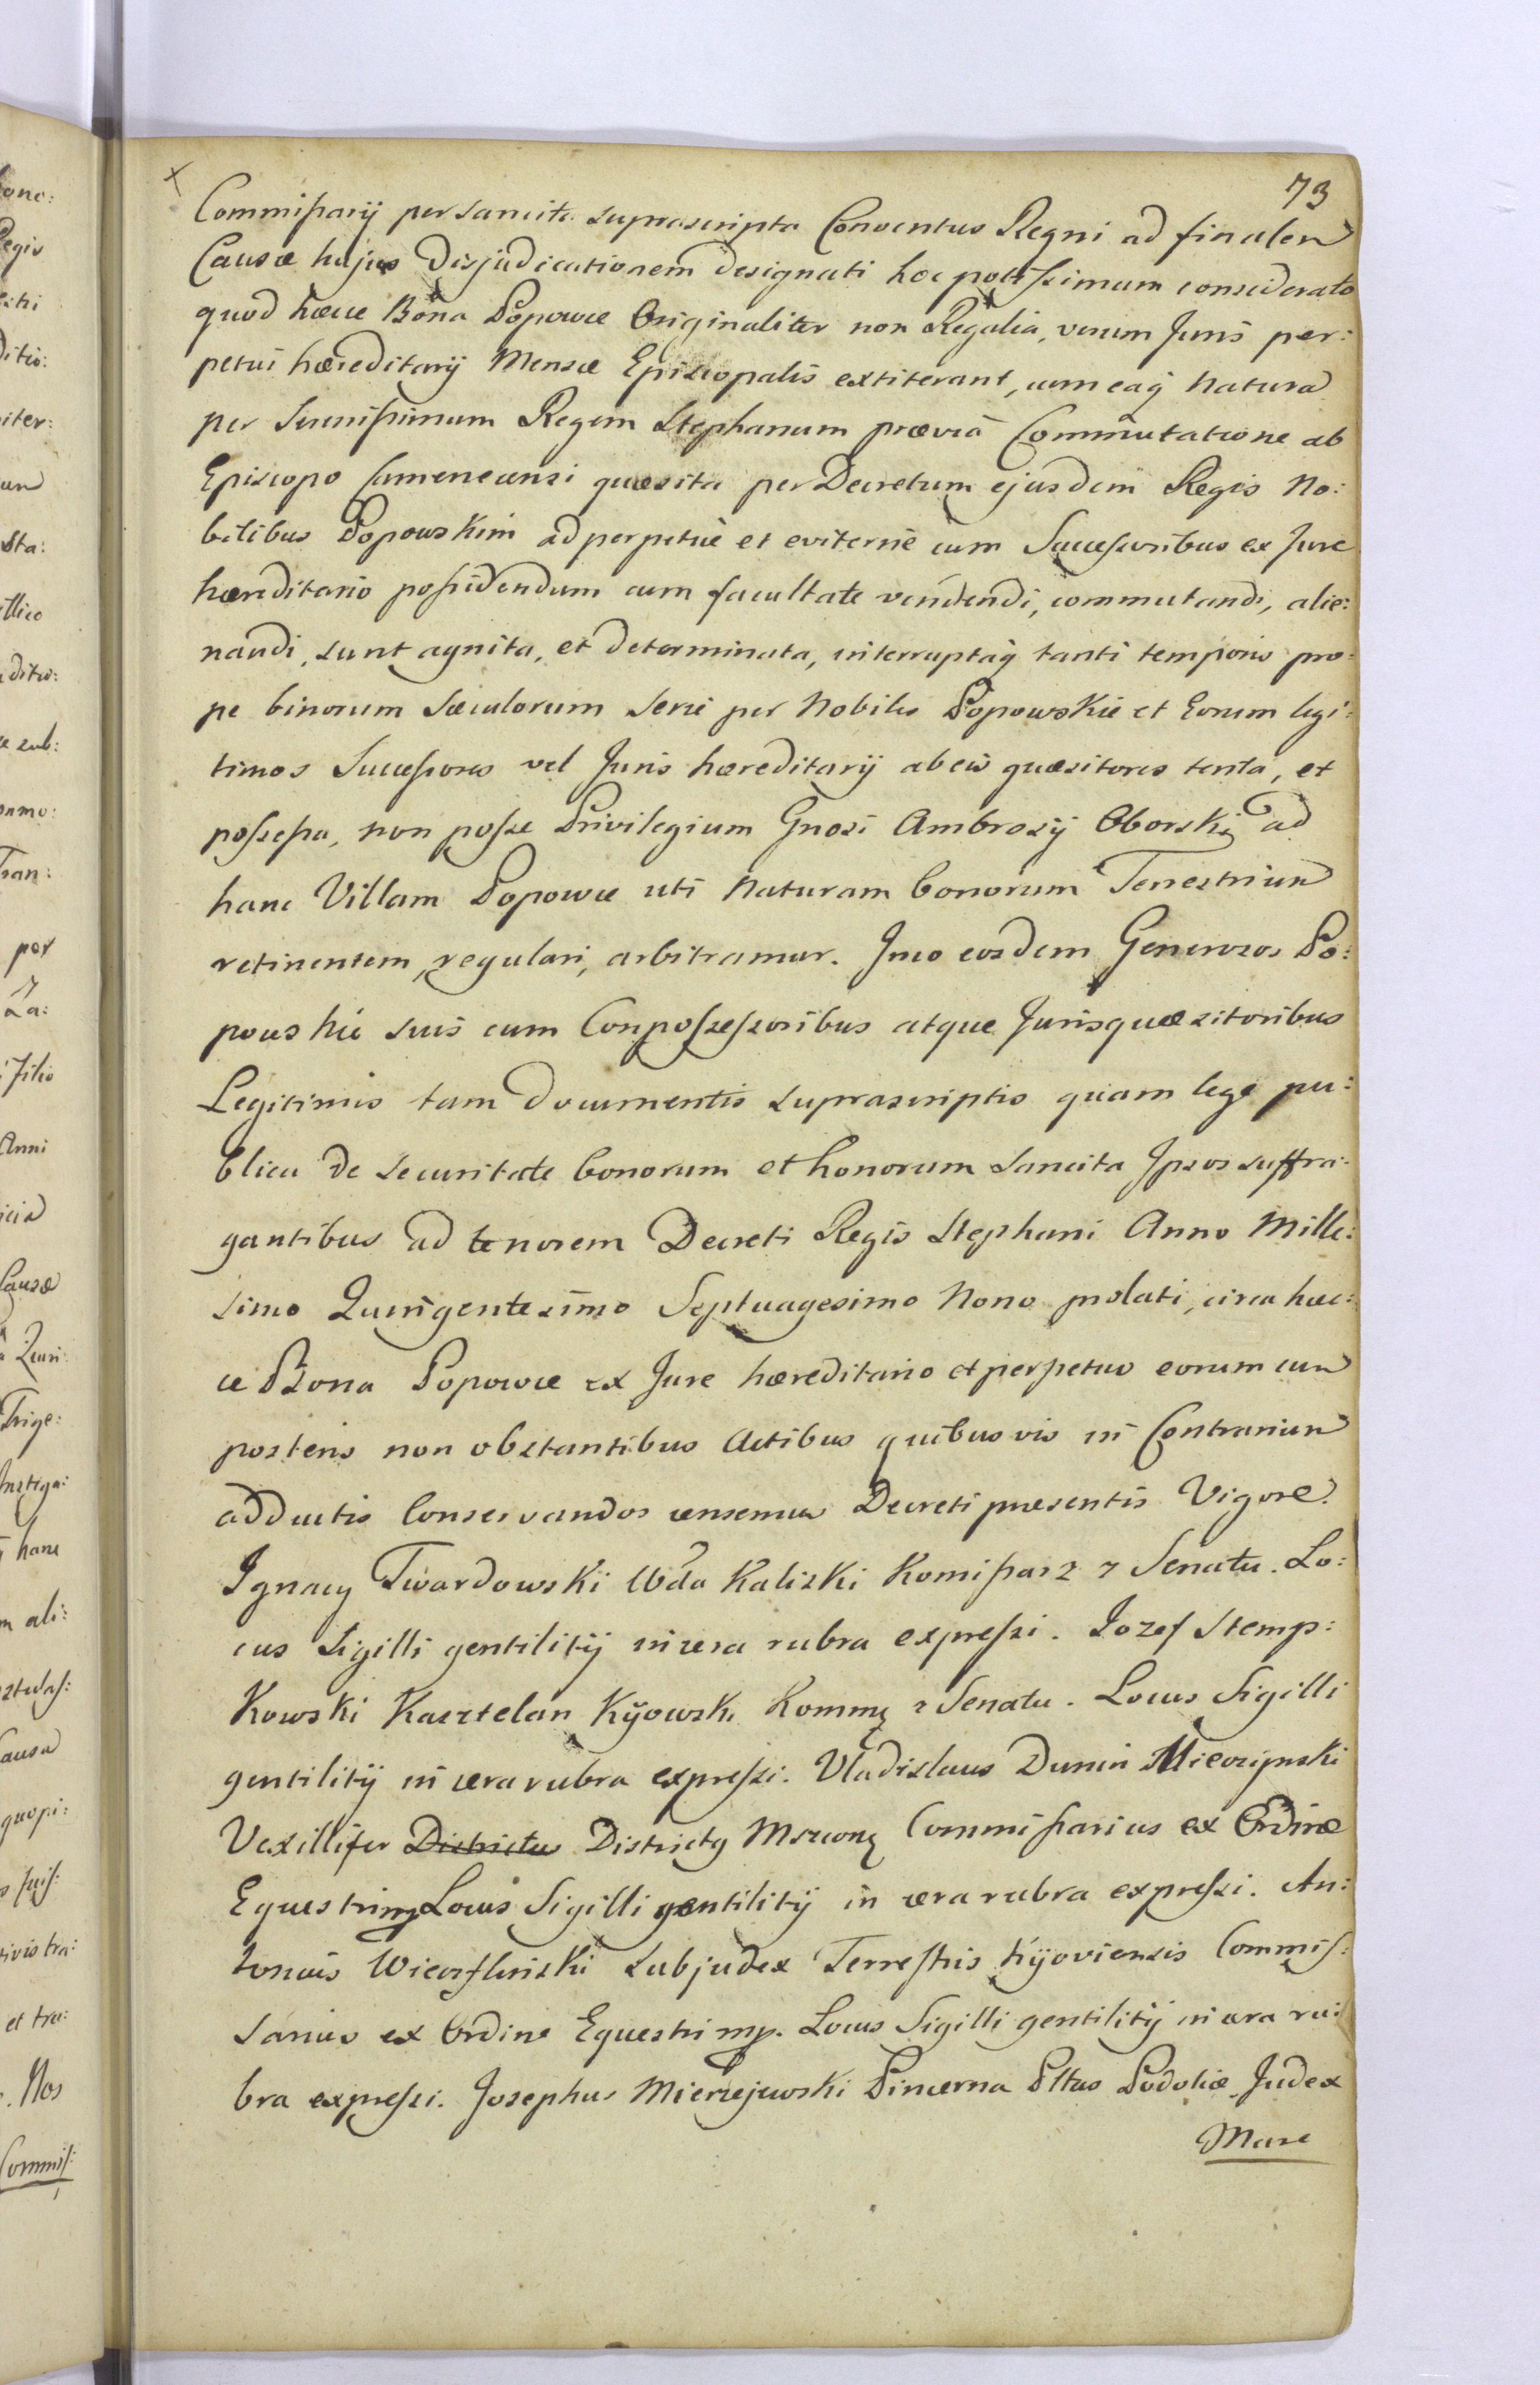 73
Commissarij per sancita suprascripta Conventus Regni ad finalem
Causæ hujus Disjudicationem designati hoc potissimum considerato
quod hæcce Bona Popowce Originaliter non Regalia, verum Juris per:
petui hæreditarij Mensæ Episcopalis extiterant, cum eaq̄ Natura
per Serenissimum Regem Stephanum præviâ Commutatione ab
Episcopo Camenecensi quæsita per Decretum ejusdem Regis No:
bilibus Popowskim ad perpetuè et eviternè cum Successoribus ex Jure
hæreditario possidendum cum facultate vendendi, commutandi, alie:
nandi, sunt agnita, et determinata, interruptaq̄ tanti temporis pro:
pe binorum Sæculorum Serie per Nobiles Popowskie et Eorum legi:
timos Successores vel Juris hæreditarij ab eis quæsitores tenta, et
possessa, non posse Privilegium Gnosi Ambrosij Oborski ad
hanc Villam Popowce uti Naturam bonorum Terrestrium
retinentem, regulari, arbitramur. Imo eosdem Generosos Po:
powskie suis cum Conpossessoribus atque Jurisquæsitoribus
Legitimis tam documentis suprascriptis quam lege pu:
blica de securitate bonorum et honorum sancita Ipsos suffra:
gantibus ad tenorem Decreti Regis Stephani Anno Mille:
simo Quingentesimo Septuagesimo Nono prolati, circa hæc:
ce Bona Popowce ex Jure hæreditario et perpetuo eorum cum
posteris non obstantibus Actibus quibusvis in Contrarium
adductis Conservandos censemus Decreti præsentis Vigore.
Ignacy Twardowski Wda Kaliski Komissarz z Senatu. Lo:
cus Sigilli gentilitij in cera rubra expressi. Jozef Stemp:
Kowski Kasztelan Kijowski Kommę z Senatu. Locus Sigilli
gentilitij in cera rubra expressi. Vladislaus Dunin
Vexillifer Districtus Districtq Commissarius ex Ordine
Equestri mp. Locus Sigilli gentilitij in cera rubra expressi. An:
tonius Subjudex Terrestris Kijoviensis Commis:
sarius ex Ordine Equestri mp. Locus Sigilli gentilitij in cera ru:
bra expressi. Josephus Mierzejewski Pincerna Pltus Podoliæ Judex
Mare